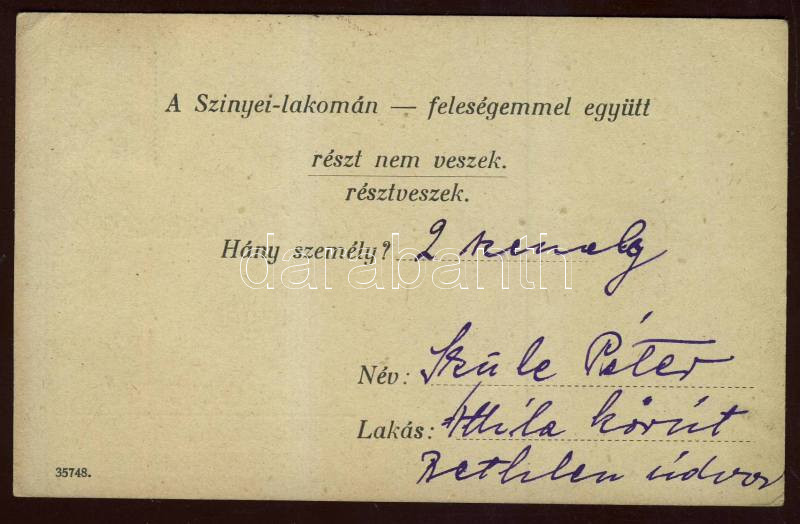 A Szinyei-lakomán — feleségemmel együtt
részt nem veszek.
résztveszek.
Hány személy? 2 személy
darabanth
Név: Szüle Péter
Lakás: Attila körút
Bethlen údvar
35748.